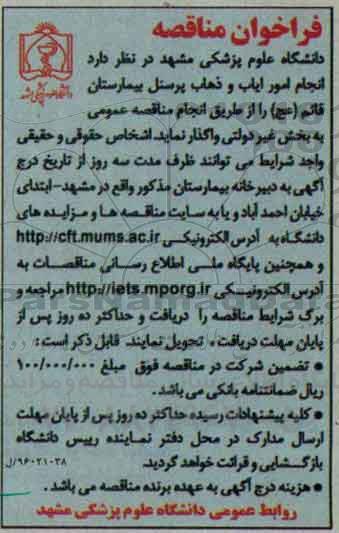 فراخوان مناقصه
دانشگاه علوم پزشکی مشهد در نظر دارد
انجام امور ایاب و ذهاب پرسنل بیمارستان
قائم (عج) را از طریق انجام مناقصه عمومی
به بخش غیر دولتی واگذار نماید. اشخاص حقوقی و حقیقی
واجد شرایط می توانند ظرف مدت سه روز از تاریخ درج
آگهی به دبیرخانه بیمارستان مذکور واقع در مشهد-ابتدای
خیابان احمد آباد و یا به سایت مناقصه ها و مزایده های
دانشگاه به آدرس الکترونیکی http://cft.mums.ac.ir
و همچنین پایگاه ملی اطلاع رسانی مناقصات به
آدرس الکترونیکی http://iets.mporg.ir مراجعه و
برگ شرایط مناقصه را دریافت و حداکثر ده روز پس از
پایان مهلت دریافت، تحویل نمایند. قابل ذکر است:
• تضمین شرکت در مناقصه فوق مبلغ ۱۰۰/۰۰۰/۰۰۰
ریال ضمانتنامه بانکی می باشد.
• کلیه پیشنهادات رسیده حداکثر ده روز پس از پایان مهلت
ارسال مدارک در محل دفتر نماینده رییس دانشگاه
بازگشایی و قرائت خواهد گردید.
۹۶۰۲۱۰۳۸/ل
• هزینه درج آگهی به عهده برنده مناقصه می باشد.
روابط عمومی دانشگاه علوم پزشکی مشهد